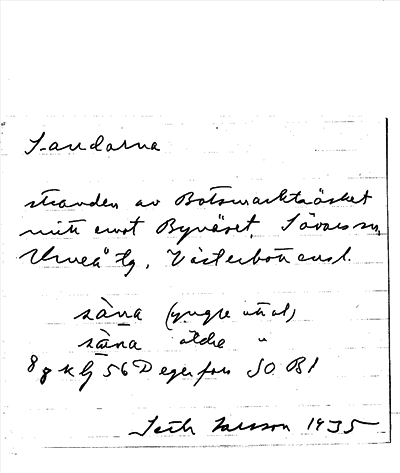 Sandarna
stranden av Botsmarksträsket
mitt emot Bynäset, Sävars sn,
Umeå tg, Västerbottens l.
sàna (yngre uttal)
sàna äldre "
8 g k bj 56 Degerfors SO Bl
Seth Larsson 1935